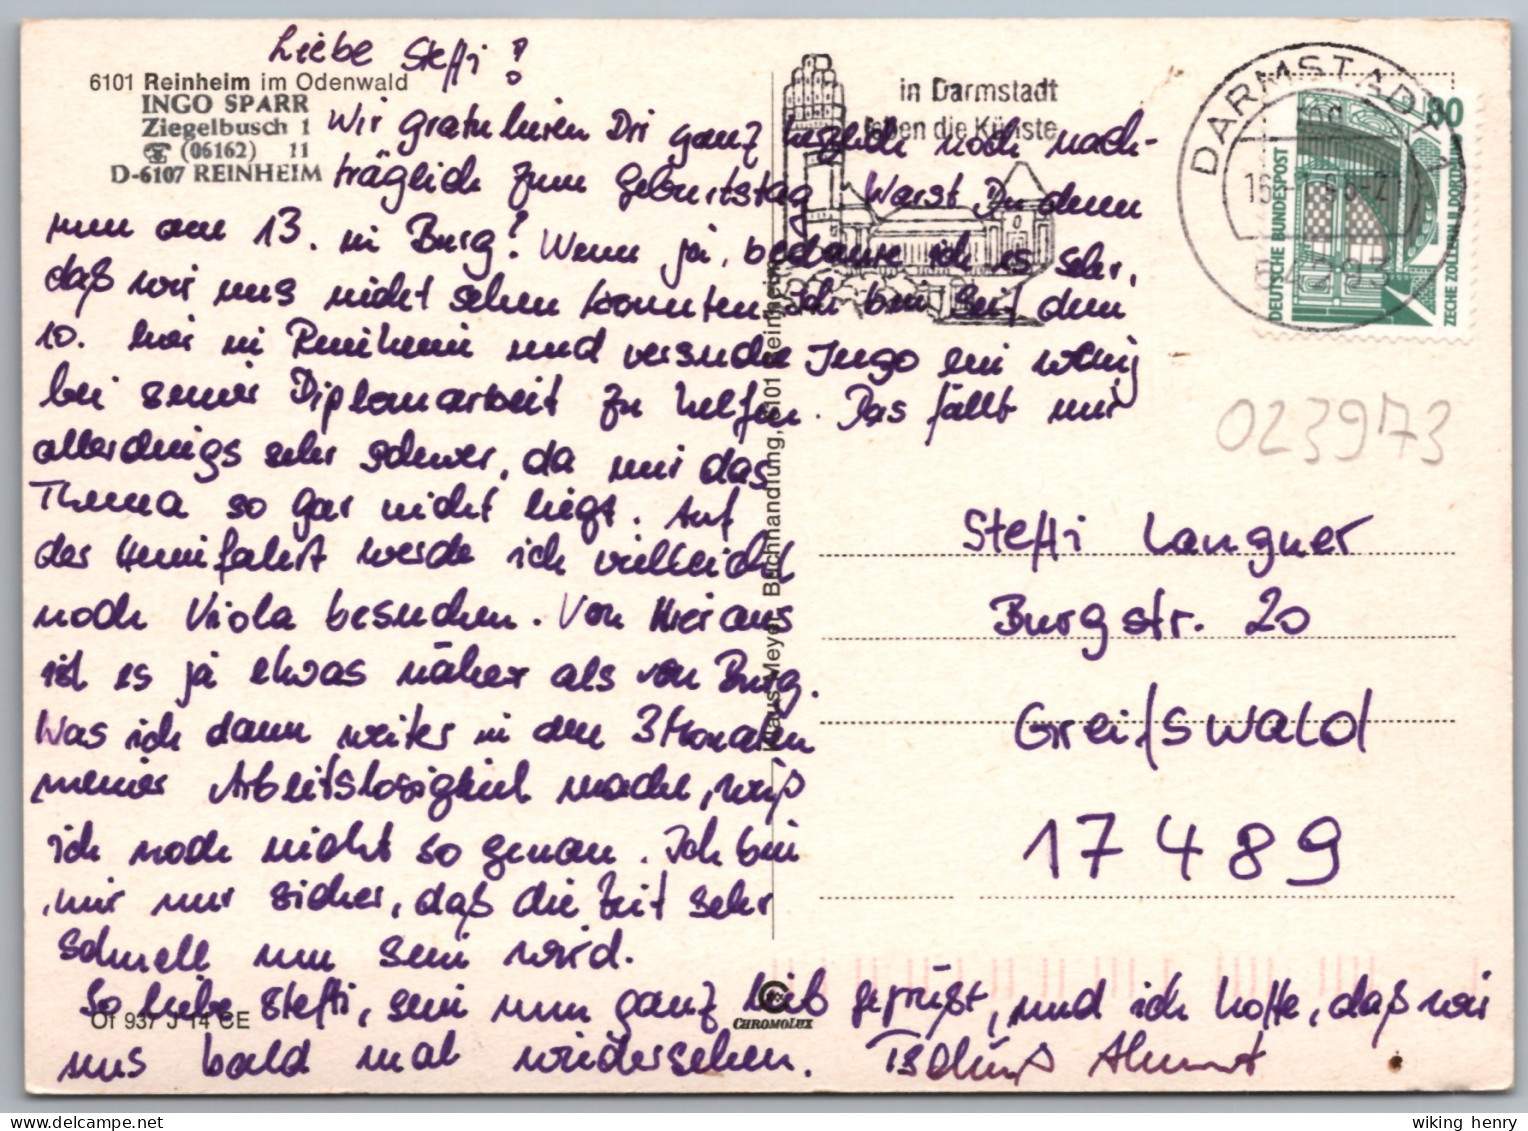 Liebe Steffi!
6101 Reinheim im Odenwald
INGO SPARR
Ziegelbusch 1
☎ (06162) 11
D-6107 REINHEIM
Wir gratulieren Dir ganz herzlich noch nach-
träglich zum Geburtstag. Warst Du denn
nun am 13. in Burg? Wenn ja, bedaure ich es sehr,
daß wir uns nicht sehen konnten. Ich bin seit dem
10. hier in Reinheim und versuche Ingo ein wenig
bei seiner Diplomarbeit zu helfen. Das fällt mir
allerdings sehr schwer, da mir das
Thema so gar nicht liegt. Auf
der Heimfahrt werde ich vielleicht
noch Viola besuchen. Von Hier aus
ist es ja etwas näher als von Burg.
Was ich dann weiter in den 3 Monaten
meiner Arbeitslosigkeit mache, weiß
ich noch nicht so genau. Ich bin
mir nur sicher, daß die Zeit sehr
schnell um sein wird.
So liebe Steffi, sei nun ganz lieb gegrüßt, und ich hoffe, daß wir
uns bald mal wiedersehen. Tschüß Almut
Of 937 J 14 CE
CHROMOLUX
Klaus Meyer, Buchhandlung, 6101 Reinheim
in Darmstadt
leben die Künste
DARMSTADT
DEUTSCHE BUNDESPOST
80
ZECHE ZOLLERN II DORTMUND
023973
Steffi Langner
Burgstr. 20
Greifswald
17489
wiking henry